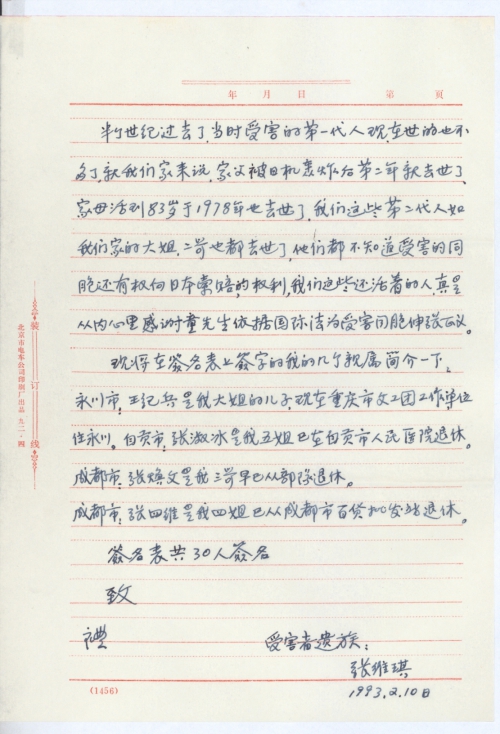 年 月 日 第 页
半个世纪过去了,当时受害的第一代人现在世的也不
多了,就我们家来说,家父被日机轰炸后第二年就去世了,
家母活到83岁于1978年也去世了,我们这些第二代人如
我们家的大姐,二哥也都去世了,他们都不知道受害的同
胞还有权向日本索赔的权利,我们这些还活着的人,真是
从内心里感谢童先生依据国际法为受害同胞伸张正义。
现将在签名表上签字的我的几个亲属简介一下:
永川市:王纪兵是我大姐的儿子,现在重庆市文工团工作单位
住永川。自贡市:张淑冰是我五姐已在自贡市人民医院退休。
成都市:张焕文是我三哥早已从部队退休。
成都市:张四维是我四姐已从成都市百货批发站退休。
签名表共30人签名
致
礼
受害者遗族:
张维琪
1993.2.10日
(1456)
装订线
北京市电车公司印刷厂出品 九二·